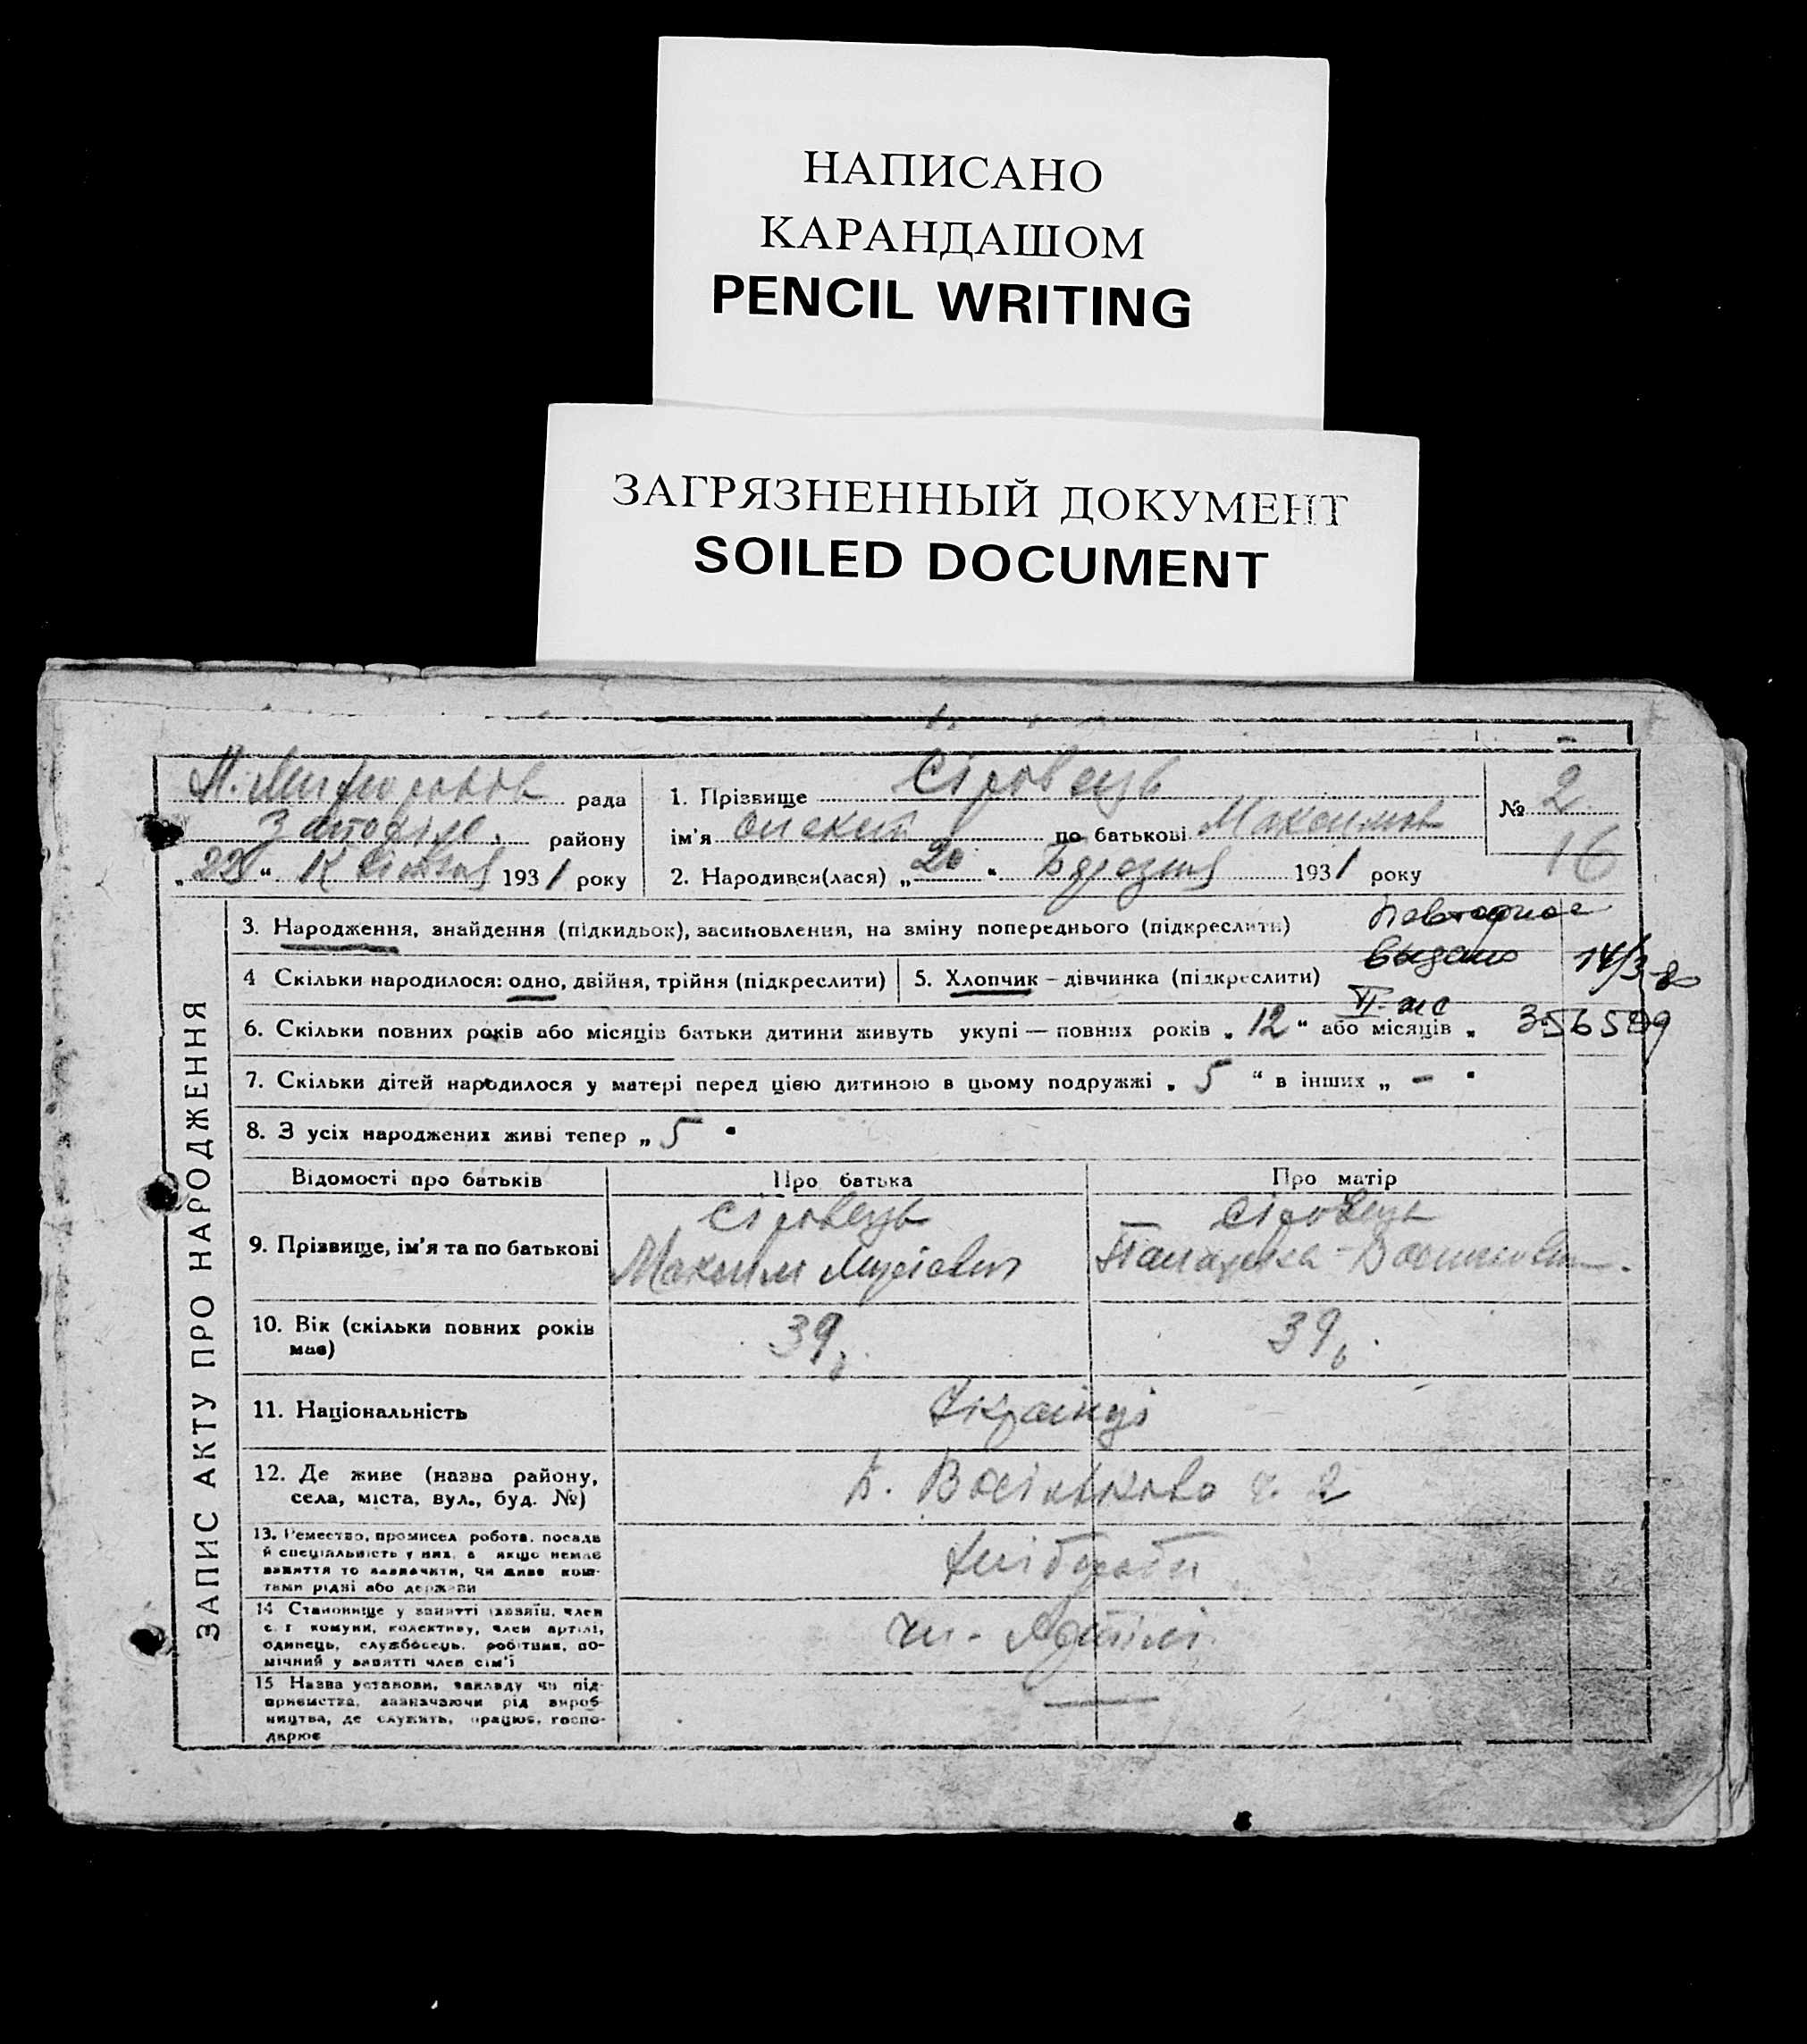 НАПИСАНО
КАРАНДАШОМ
PENCIL WRITING
ЗАГРЯЗНЕННЫЙ ДОКУМЕНТ
SOILED DOCUMENT
рада
району
„22“ Квітня 1931 року
1. Прізвище Сіровець
ім'я по батькові Максимов
2. Народився(лася) „20“ Березня 1931 року
№ 2
16
ЗАПИС АКТУ ПРО НАРОДЖЕННЯ
3. Народження, знайдення (підкидьок), засиновлення, на зміну попереднього (підкреслити)
Повторное
выдано 14/3-80
4 Скільки народилося: одно, двійня, трійня (підкреслити)
5. Хлопчик — дівчинка (підкреслити)
6. Скільки повних років або місяців батьки дитини живуть укупі — повних років „12“ або місяців „
7. Скільки дітей народилося у матері перед цією дитиною в цьому подружжі „5“ в інших „ – "
8. З усіх народжених живі тепер „5"
Відомості про батьків
Про батька
Про матір
9. Прізвище, ім'я та по батькові
Сіровець
Максим Мусієвич
Сіровець
10. Вік (скільки повних років має)
39
39
11. Національність
Українці
12. Де живе (назва району,
села, міста, вул., буд. №)
13. Ремество, промисел робота, посада
й спеціальність у них, а якщо немає
заняття то зазначити, чи живе кош-
тами рідні або держави
Хлібороби
14 Становище у занятті (хазяїн, член
с. г комуни, колективу, член артілі,
одинець, службовець, робітник, по-
мічний у занятті член сім'ї
чл. Артілі
15 Назва установи, закладу чи під-
приємства, зазначаючи рід вироб-
ництва, де служить, працює, госпо-
дарює